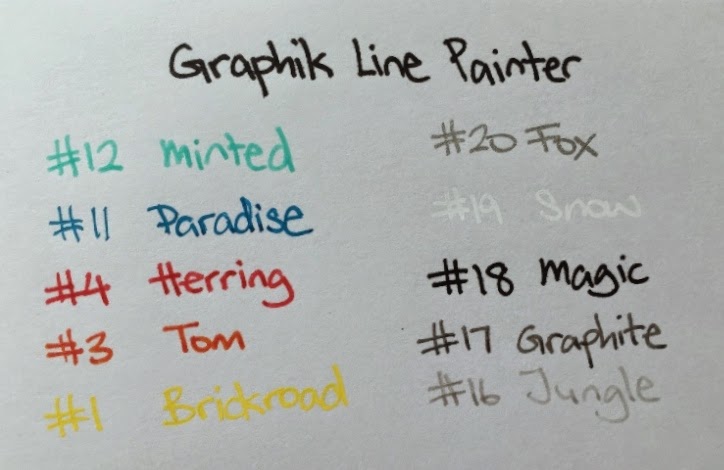 Graphik Line Painter
#12 minted
#11 Paradise
#4 Herring
#3 Tom
#1 Brickroad
#20 Fox
#19 Snow
#18 magic
#17 Graphite
#16 Jungle